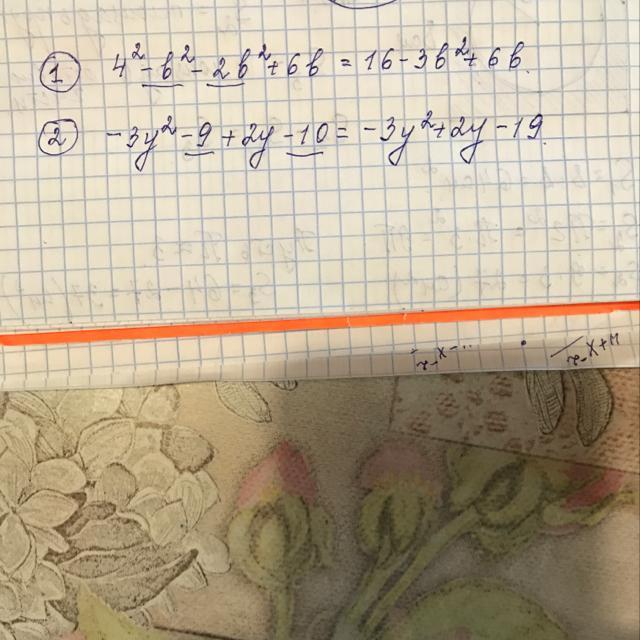 ① 4² - b² - 2b² + 6b = 16 - 3b² + 6b.
② -3y² - 9 + 2y - 10 = -3y² + 2y - 19.